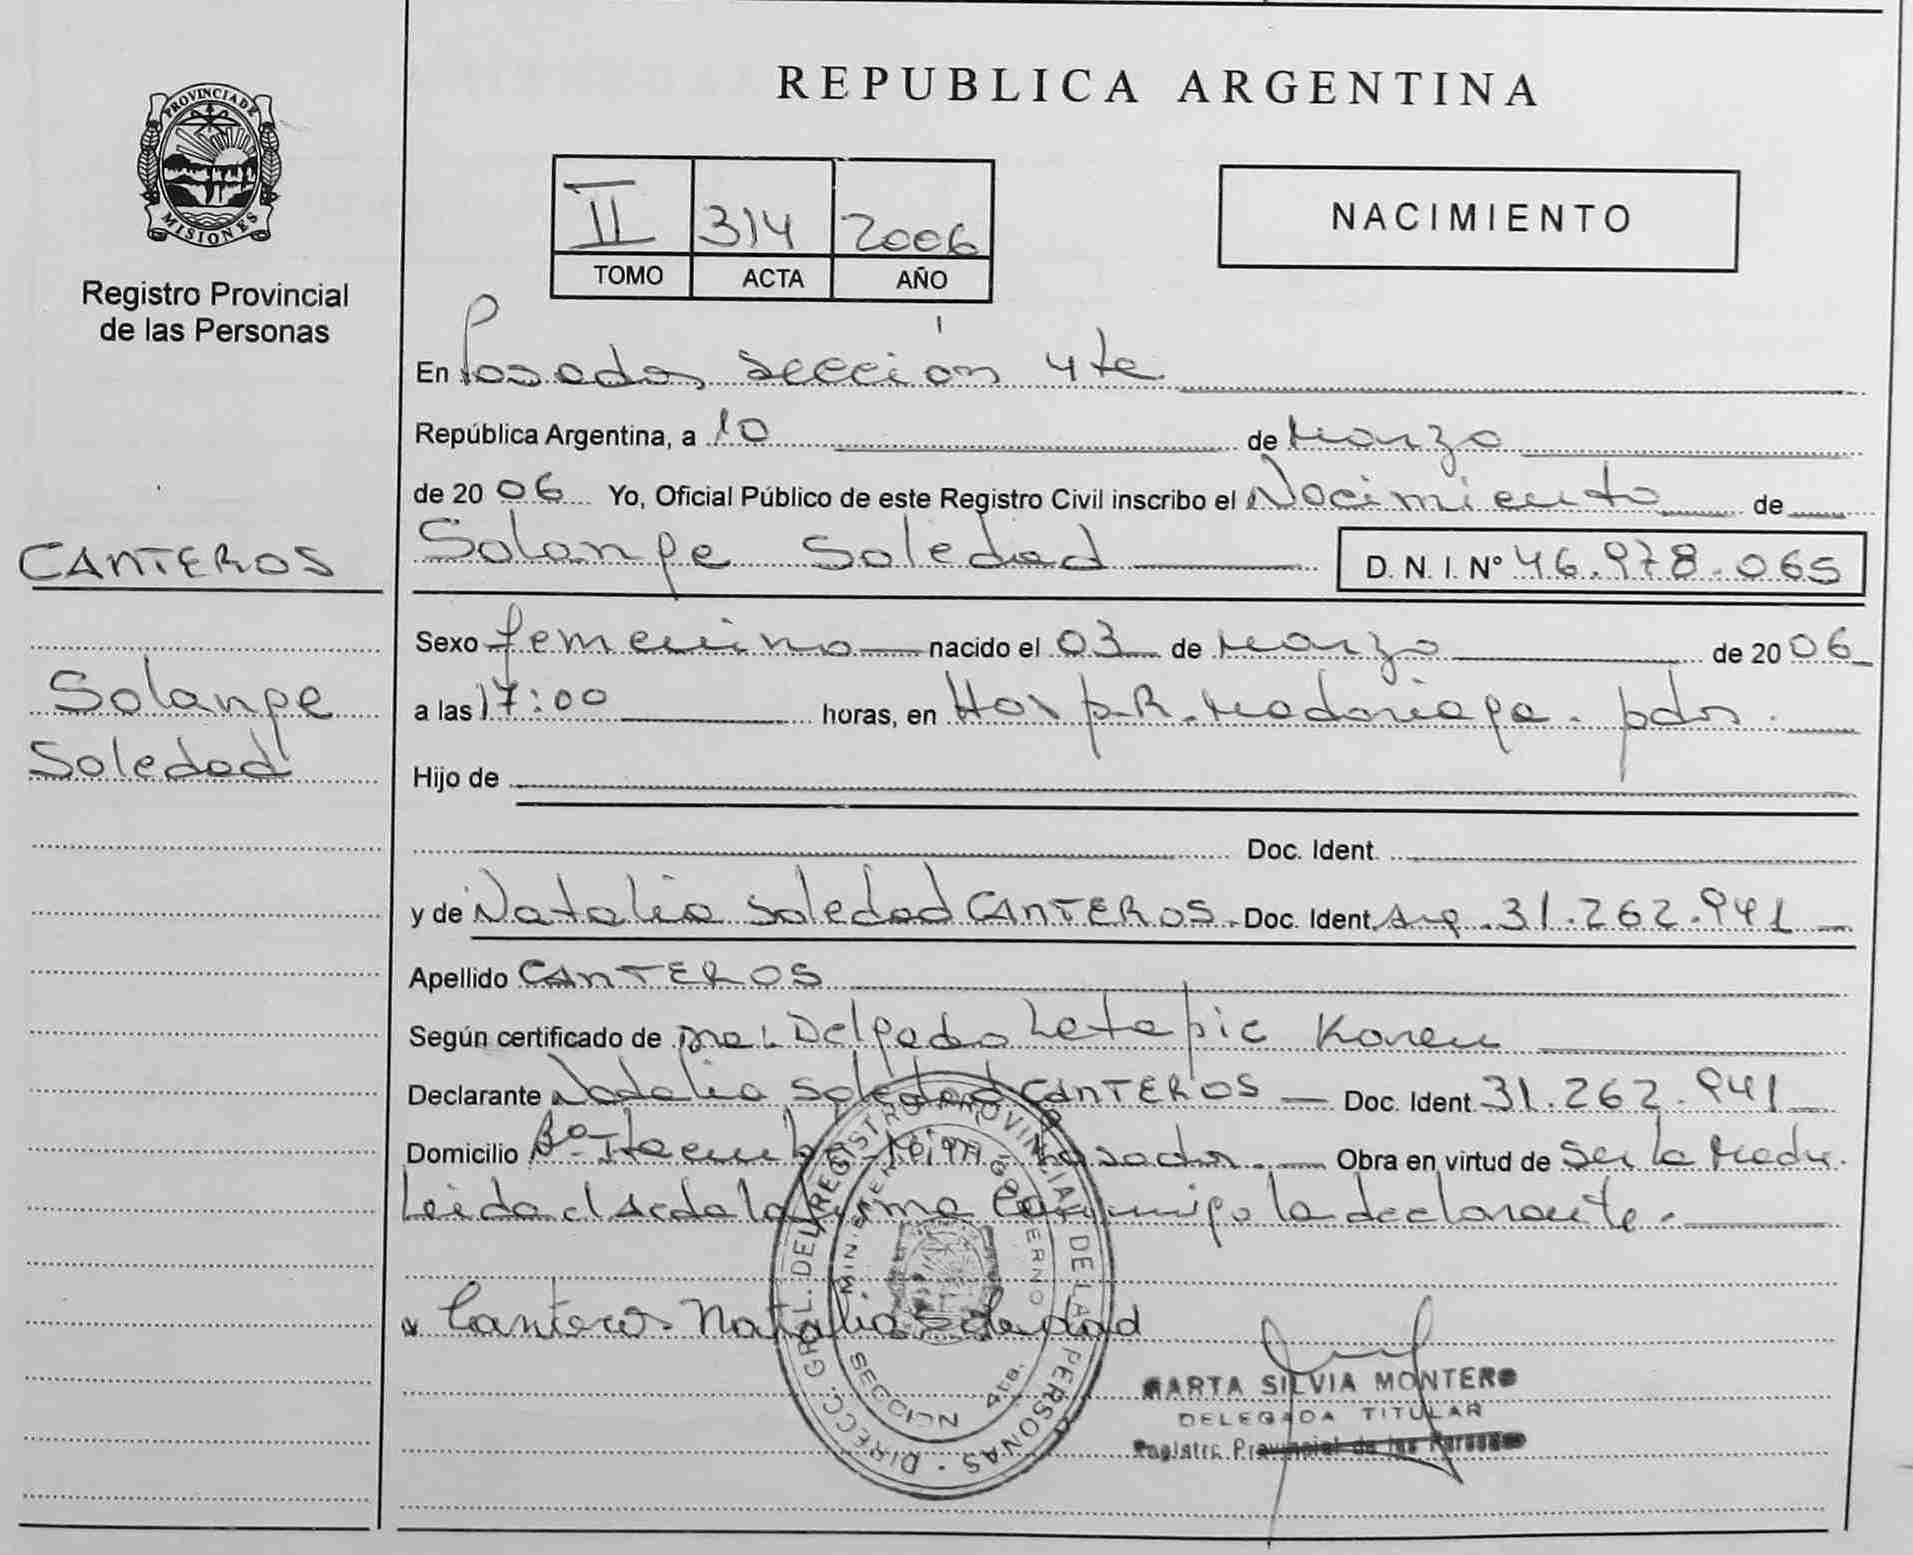 REPUBLICA ARGENTINA
PROVINCIA DE
MISIONES
Registro Provincial
de las Personas
II 314 2006
TOMO ACTA AÑO
NACIMIENTO
En Posadas sección 4ta
República Argentina, a 10 de Marzo
de 2006 Yo, Oficial Público de este Registro Civil inscribo el Nacimiento de
CANTEROS
Solange Soledad D. N. I. N° 46.978.065
Sexo femenino nacido el 03 de Marzo de 2006
Solange
Soledad
a las 17:00 horas, en Hosp. R. Madariaga. pdas.
Hijo de
Doc. Ident.
y de Natalia Soledad CANTEROS. Doc. Ident. Arg. 31.262.941
Apellido CANTEROS
Según certificado de Dra. Delgado Karen
Declarante Natalia Soledad CANTEROS Doc. Ident. 31.262.941
Domicilio Bº Posadas. Obra en virtud de Ser la Madre.
Leida el Acta la firma conmigo la declarante.
Canteros Natalia Soledad
DIRECC. GRAL. DEL REGISTRO PROVINCIAL DE LAS PERSONAS
MINISTERIO GOBIERNO
SECCION 4ta.
MARTA SILVIA MONTERO
DELEGADA TITULAR
Registro Provincial de las Personas